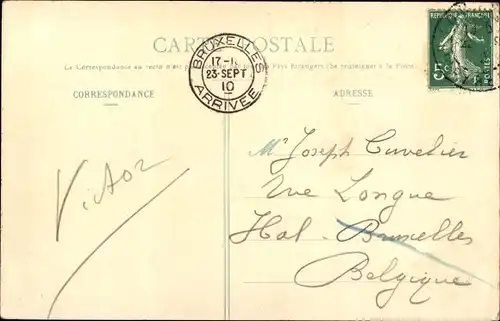 CARTE POSTALE
La Correspondance au recto n'est pas
Pays Étrangers (Se renseigner à la Poste)
CORRESPONDANCE
ADRESSE
BRUXELLES
17-1
23 SEPT
10
ARRIVÉE
REPUBLIQUE FRANÇAISE
5c
POSTES
Victor
Mr Joseph Cuvelier
Rue Longue
Hal-Bruxelles
Belgique